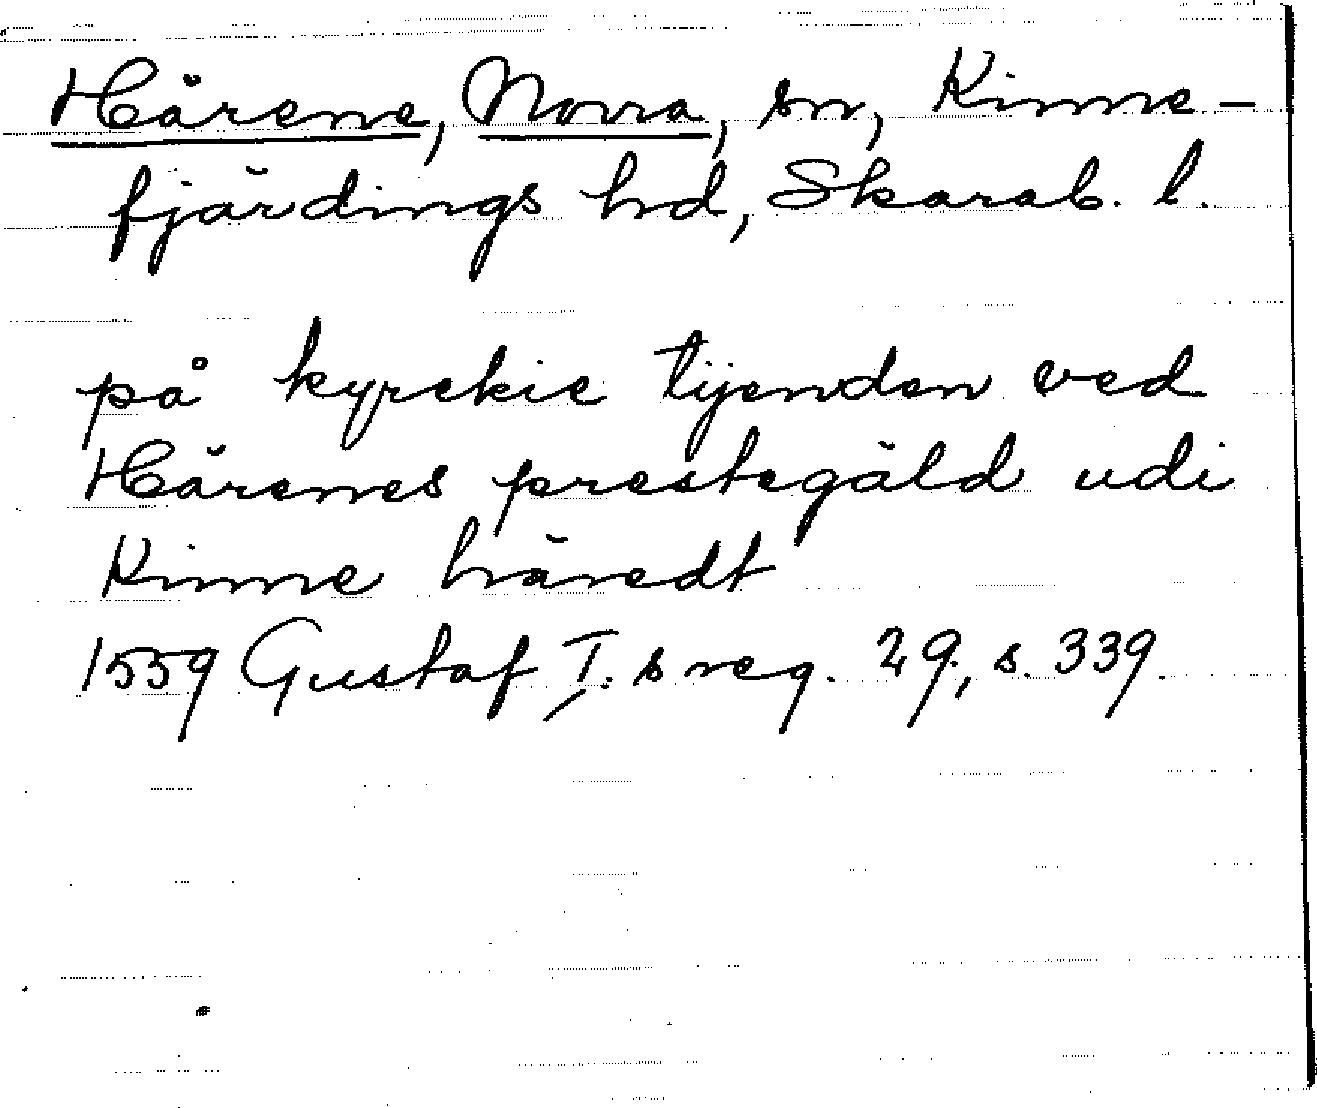 Härene, Norra, sn, Kinne-
fjärdings hd, Skarab. l.
på kyrckie tijenden ved
Härenes prestegäld udi
Kinne häredt
1559 Gustaf I. s reg. 29, s. 339.